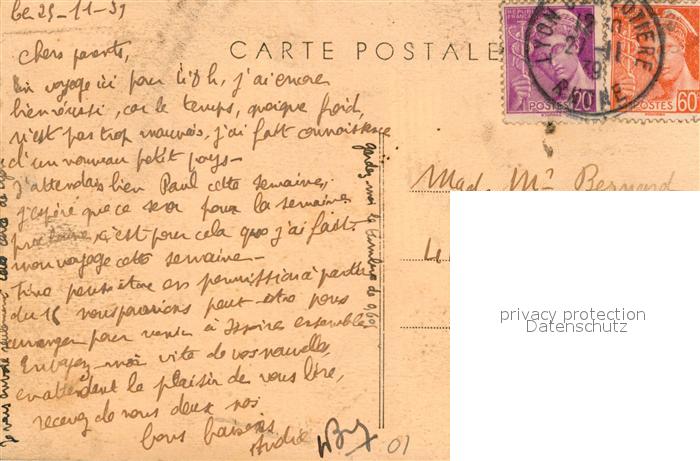 Le 25-11-39
CARTE POSTALE
Chers parents,
voyage ici pour j'ai encore
bien réussi, car le temps, quoique froid,
n'est pas trop mauvais, j'ai fait connaissance
d'un nouveau petit pays -
J'attendais bien Paul cette semaine,
j'espère que ce sera pour la semaine
c'est pour cela que j'ai fait
mon voyage cette semaine -
peut être en permission à partir
du 15 nous pourrions peut-être nous
arranger pour venir à ensemble
Envoyez-moi vite de vos nouvelles,
en attendant le plaisir de vous lire,
recevez de nous deux nos
bons baisers
André
gardez-moi le timbre de 0,60
Je vous envoie seulement cette carte de Lyon
Mad. Mr Bernard
LYON
RHONE
POSTES 20
POSTES 60
privacy protection
Datenschutz
01